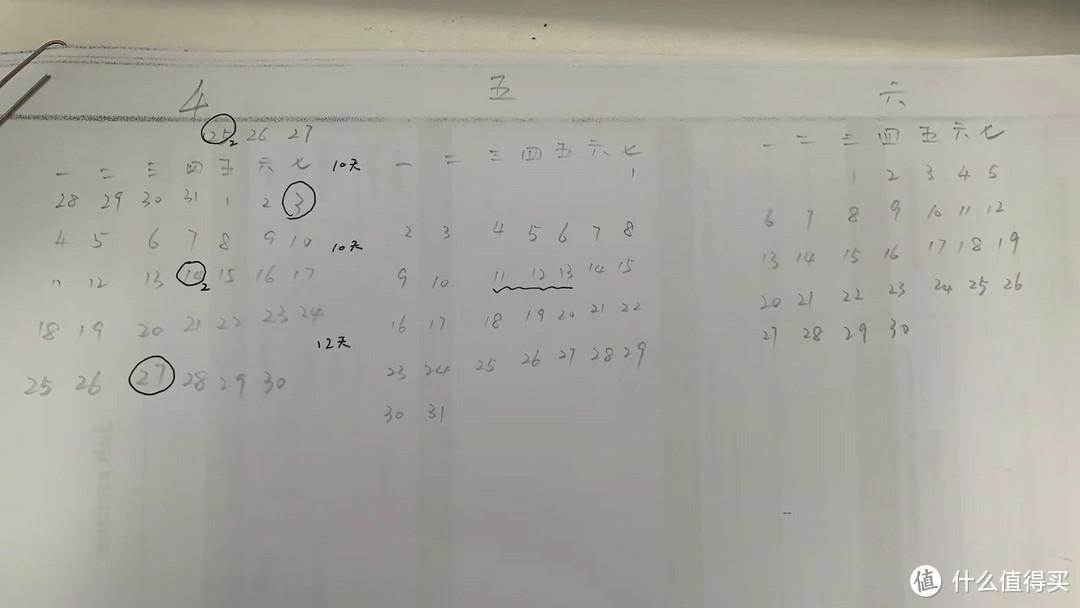 4
25 2 26 27
一 二 三 四 五 六 七
28 29 30 31 1 2 3
4 5 6 7 8 9 10
11 12 13 14 2 15 16 17
18 19 20 21 22 23 24
25 26 27 28 29 30
10天
10天
12天
五
一 二 三 四 五 六 七
1
2 3 4 5 6 7 8
9 10 11 12 13 14 15
16 17 18 19 20 21 22
23 24 25 26 27 28 29
30 31
六
一 二 三 四 五 六 七
1 2 3 4 5
6 7 8 9 10 11 12
13 14 15 16 17 18 19
20 21 22 23 24 25 26
27 28 29 30
值 什么值得买